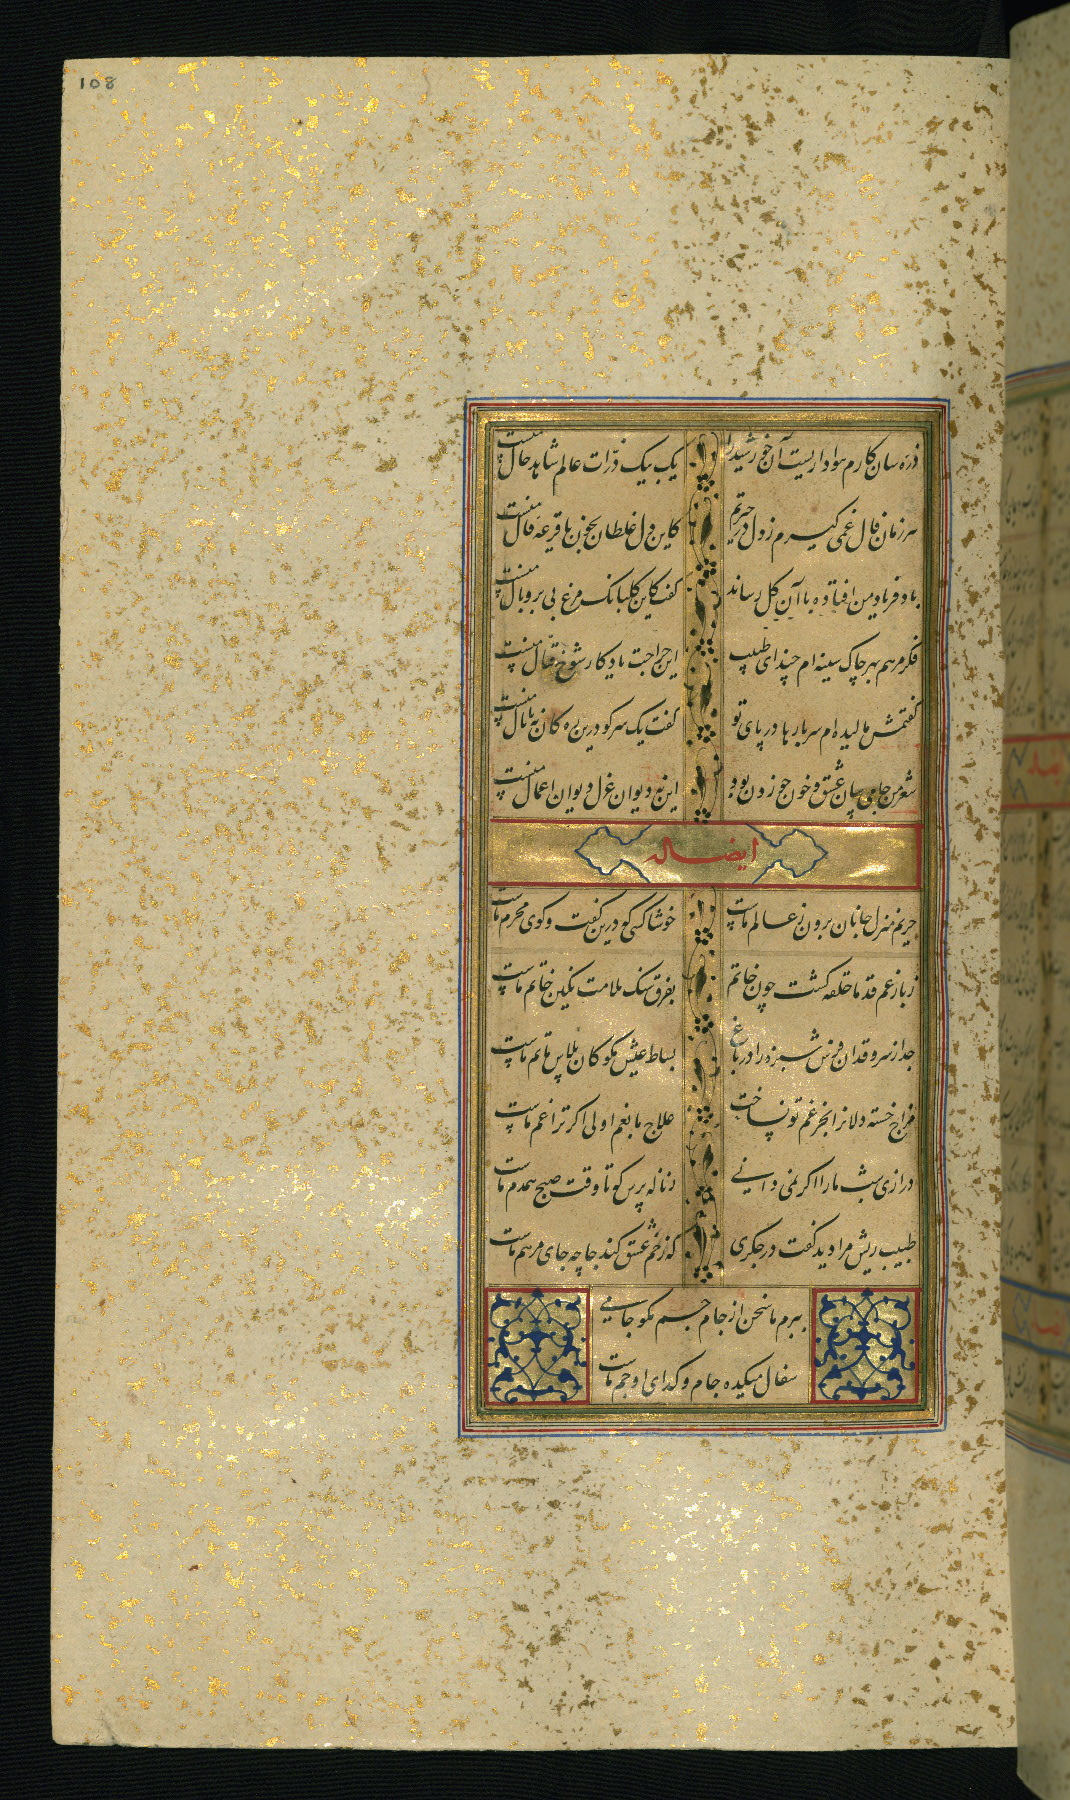 108
ذره سان کارم هواداریست آن خورشید را یک بیک ذرات عالم شاهد حال منست
هر زمان فال غمی گیرم ز دل در حیرتم کاین دل غلطان بخون یا قرعه فال منست
باد فریاد من افتاده با آن گل رساند گفت کاین گلبانگ مرغ بی پر و بال منست
فکر مرهم بهر چاک سینه ام چند ای طبیب این جراحت یادگار شوخ قتال منست
گفتمش مالیده ام سر بارها در پای تو گفت یک سر کو درین ره کان نه پامال منست
شعر من جامی بیان عشق و خون خوردن بود این نه دیوان غزل دیوان اعمال منست
ایضا له
حریم منزل جانان برون ز عالم ماست خوشا کسی که درین گفت و کوی محرم ماست
ز بار غم قد ما حلقه گشت چون خاتم بفرق سنگ ملامت نگین خاتم ماست
جدا ز سرو قدان فرش سبزه را در باغ بساط عیش مگو کان پلاس ماتم ماست
مزاج خسته دلانرا بجز غم تو نساخت علاج ما بغم اولی اگر ترا غم ماست
درازی شب ما را اگر نمی دانی ز ناله پرس که تا وقت صبح همدم ماست
طبیب ریش مرا دید گفت در جگری که زخم عشق کند جا چه جای مرهم ماست
ببزم ما سخن از جام جم مگو جامی
سفال میکده جام و گدای او جم ماست